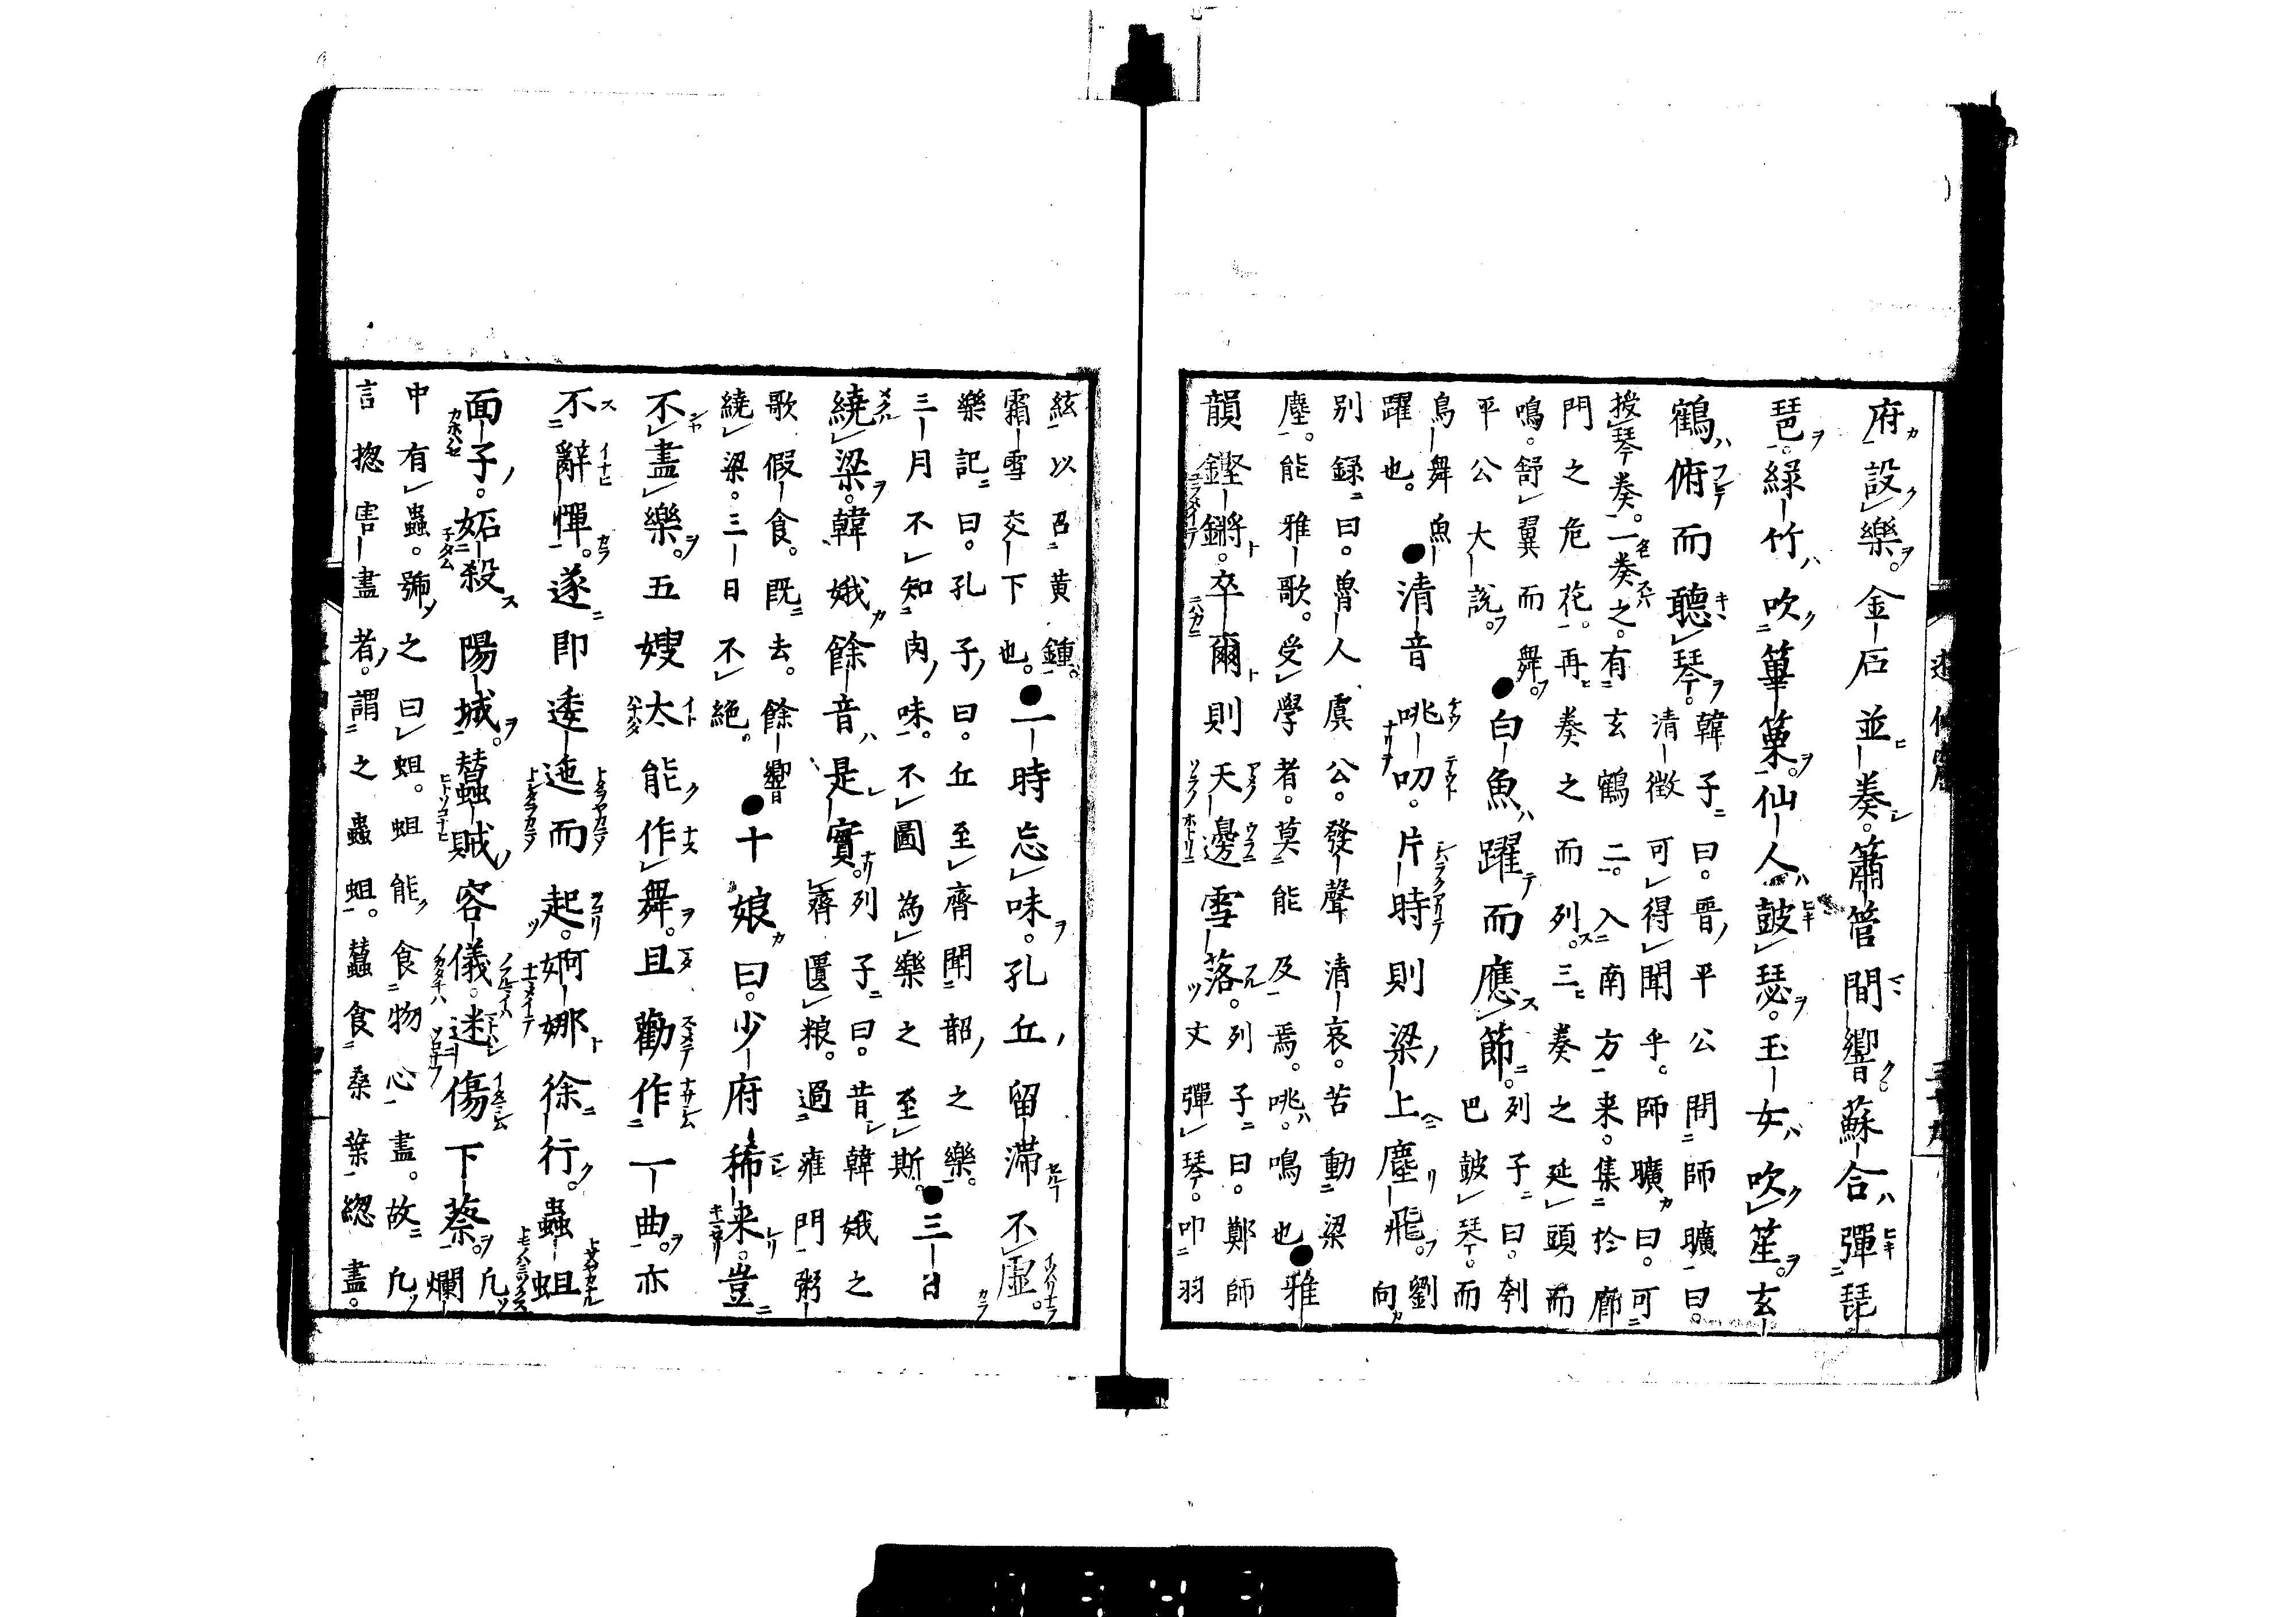 府設樂。金石並奏。簫管間響。蘇合彈琵
琶。綠竹吹篳篥。仙人鼓瑟。玉女吹笙。玄
鶴俯而聽琴。
韓子曰。晋平公問師曠曰。
清徵可得聞乎。師曠曰。可
援琴奏。一奏之。有玄鶴二。入南方来。集於廊
門之危花。再奏之而列。三奏之延頸而
鳴。舒翼而舞。
平公大説。
●白魚躍而應節。
列子曰。瓠
巴鼓琴。而
鳥舞魚
躍也。
●清音咷叨。片時則梁上塵飛。
劉向
別録曰。魯人虞公。發聲清哀。苦動梁
塵。能雅歌。受學者。莫能及焉。咷。鳴也
●雅
韻鏗鏘。卒爾則天邊雪落。
列子曰。鄭師
文彈琴。叩羽
絃以召黄鍾。
霜雪交下也。
●一時忘味。孔丘留滯不虚。
樂記曰。孔子曰。丘至齊聞韶之樂。
三月不知肉味。不圖為樂之至斯。
●三日
繞梁。韓娥餘音是實。
列子曰。昔韓娥之
齊匱粮。過雍門粥
歌假食。既去。餘響
繞梁。三日不絶。
●十娘曰。少府稀来。豈
不盡樂。五嫂太能作舞。且勸作一曲。亦
不辭憚。遂即逶迤而起。婀娜徐行。蟲蛆
面子。妬殺陽城。蠶賊容儀。迷傷下蔡。
凡爛
中有蟲。號之曰蛆。蛆能食物心盡。故凡
言揔害盡者。謂之蟲蛆。蠶食桑葉總盡。